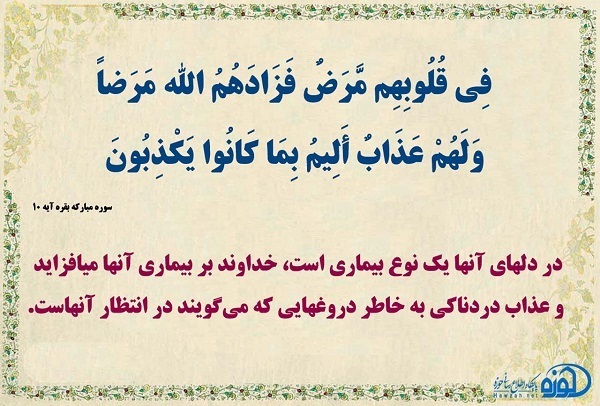 فِی قُلُوبِهِم مَّرَضٌ فَزَادَهُمُ الله مَرَضاً
وَلَهُمْ عَذَابٌ أَلِیمُ بِمَا کَانُوا یَکْذِبُونَ
سوره مبارکه بقره آیه ۱۰
در دلهای آنها یک نوع بیماری است، خداوند بر بیماری آنها میافزاید
و عذاب دردناکی به خاطر دروغهایی که می‌گویند در انتظار آنهاست.
پایگاه اطلاع رسانی حوزه
Hawzah.net